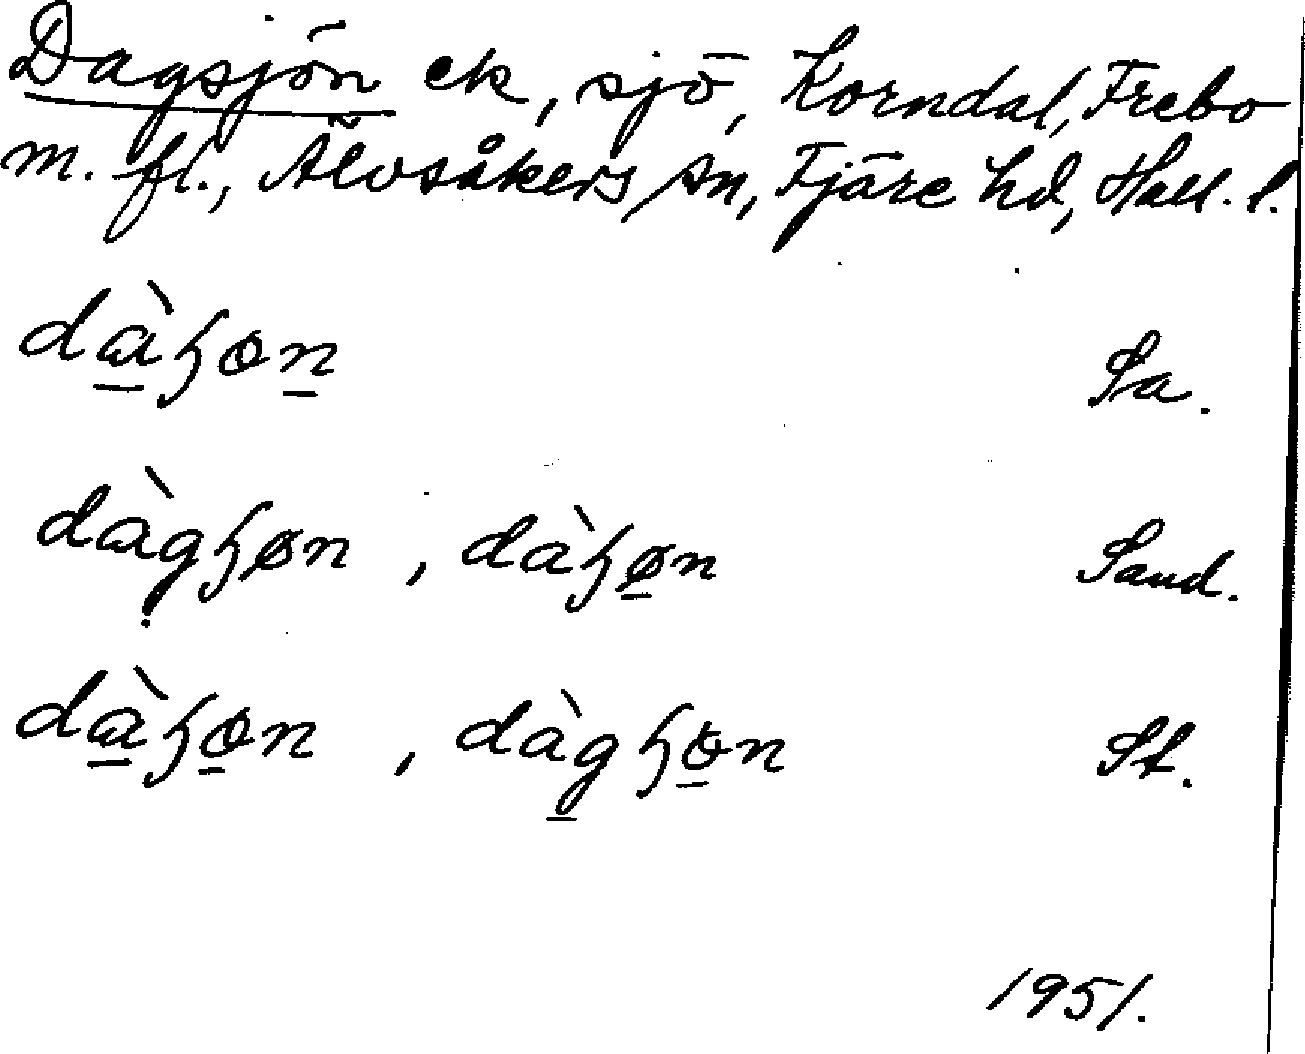 Dagsjön ek, sjö, Korndal, Frebo
m. fl., Älvsåkers sn, Fjäre hd, Hall. l.
dɑ̱̀ɧɵṉ Sa.
dɑ̀g̣ɧøn, dàɧø̱n Sand.
dɑ̱̀ɧɵ̱n, dàg̱ɧɵ̱n St.
1951.